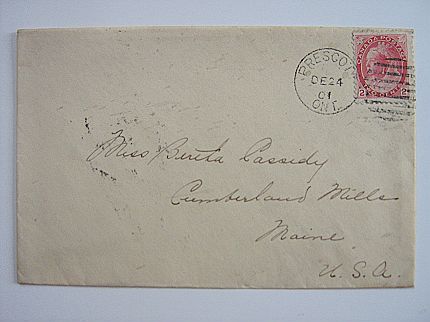 PRESCOT
DE 24
01
ONT.
CANADA POSTAGE
2 2
Miss Bertha Cassidy
Cumberland Mills
Maine
U.S.A.